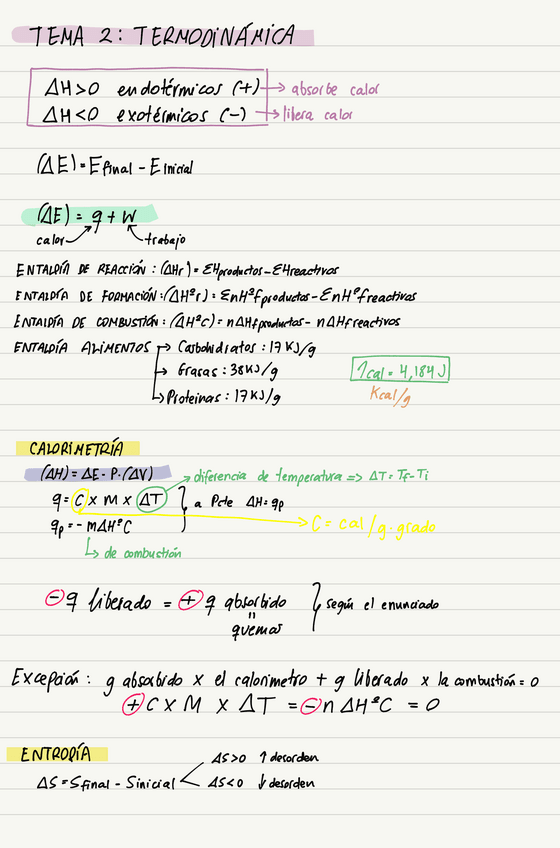 TEMA 2: TERMODINÁMICA
ΔH>0 endotérmicos (+) → absorbe calor
ΔH<0 exotérmicos (-) → libera calor
(ΔE) = Efinal - Einicial
(ΔE) = q + W
calor trabajo
ENTALPÍA DE REACCIÓN: (ΔHr) = ΣHproductos - ΣHreactivos
ENTALPÍA DE FORMACIÓN: (ΔHºr) = ΣnHºfproductos - ΣnHºfreactivos
ENTALPÍA DE COMBUSTIÓN: (ΔHºC) = nΔHfproductos - nΔHfreactivos
ENTALPÍA ALIMENTOS → Carbohidratos: 17 KJ/g
→ Grasas: 38KJ/g
→ Proteinas: 17KJ/g
1cal = 4,184J
Kcal/g
CALORIMETRÍA
(ΔH) = ΔE - P·(ΔV)
→ diferencia de temperatura => ΔT = Tf - Ti
q = C x M x ΔT } a Pcte ΔH = qp
qp = - mΔHºC
→ C = cal/g·grado
→ de combustión
- q liberado = + q absorbido } según el enunciado
"
quemar
Excepción: q absorbido x el calorimetro + q liberado x la combustión = 0
+ C x M x ΔT = - n ΔHºC = 0
ENTROPÍA
ΔS = Sfinal - Sinicial < ΔS>0 ↑ desorden
ΔS<0 ↓ desorden